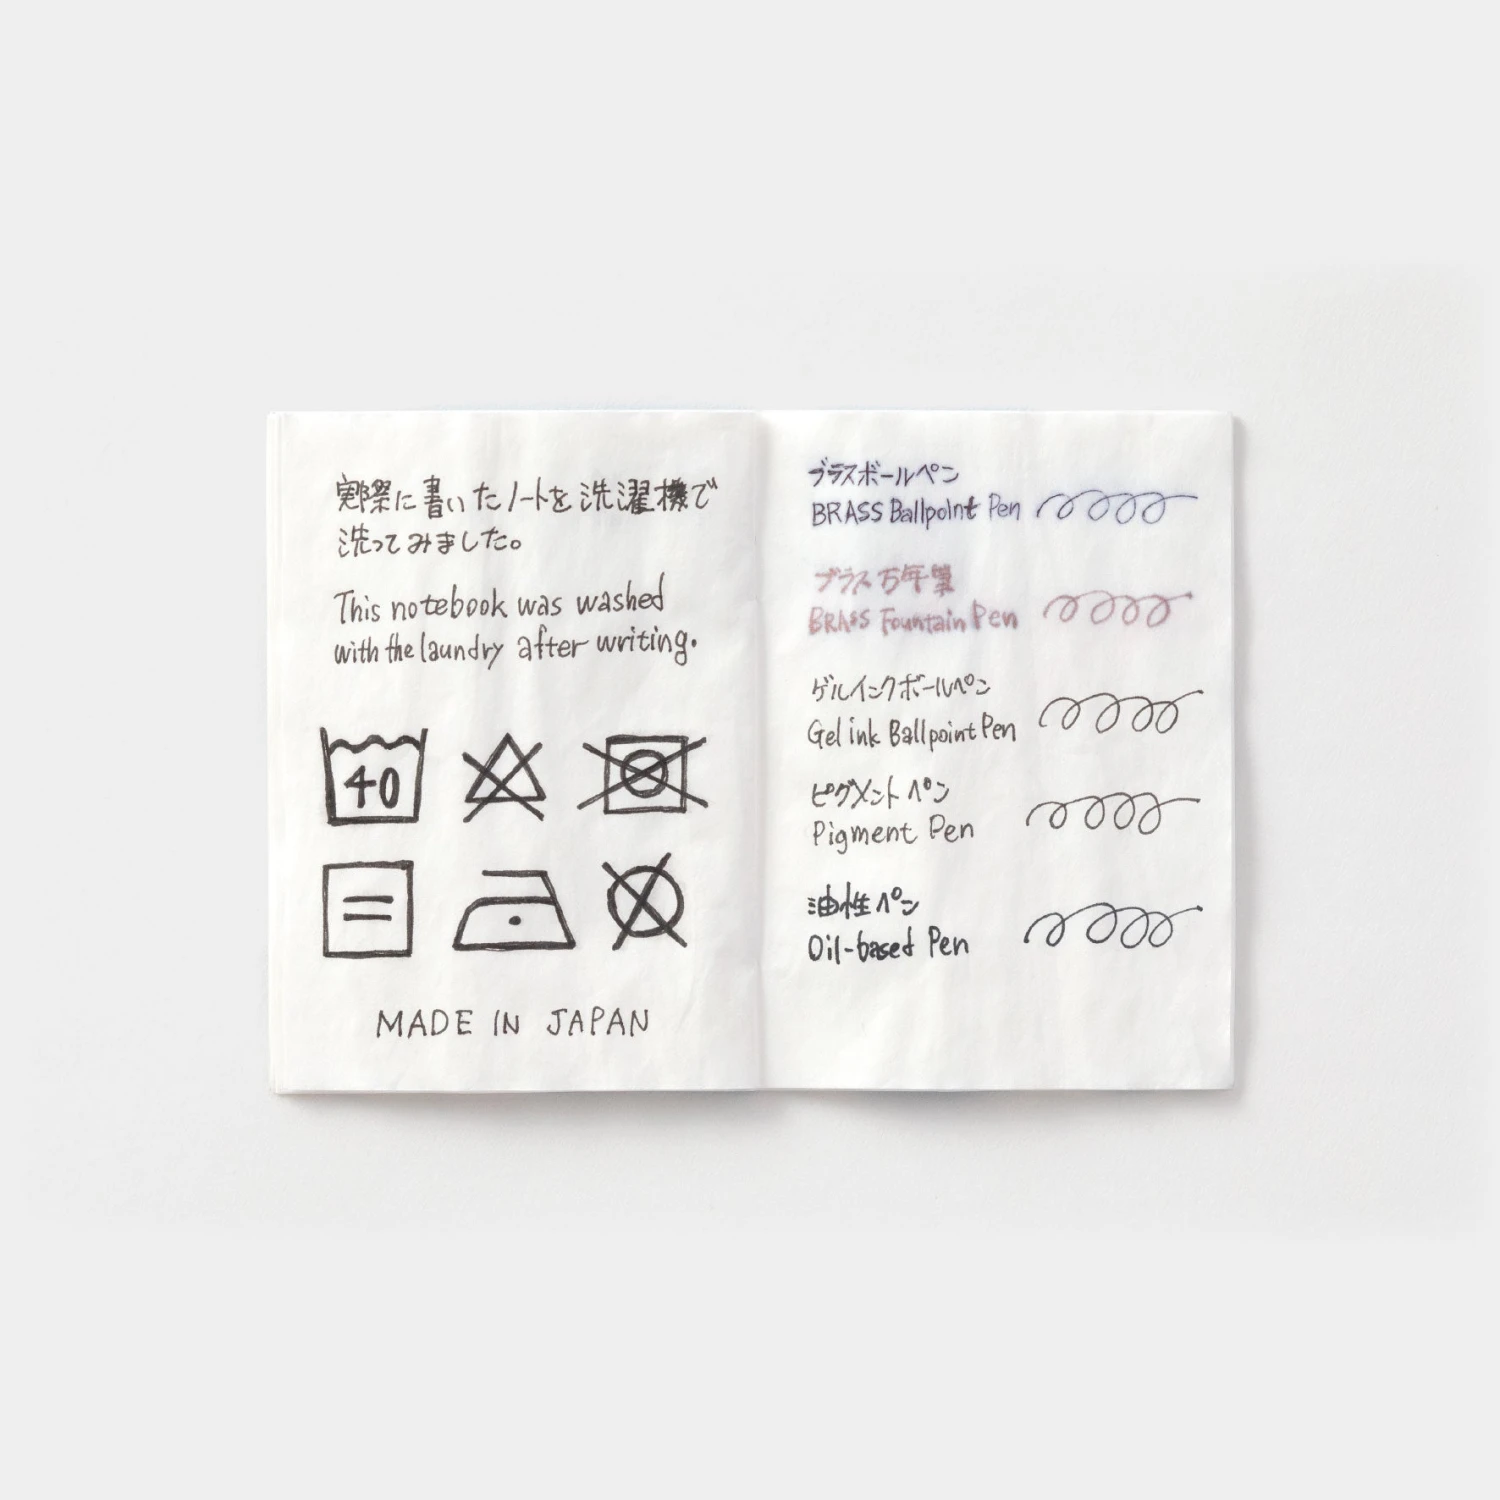 実際に書いたノートを洗濯機で
洗ってみました。
This notebook was washed
with the laundry after writing.
40
MADE IN JAPAN
ブラスボールペン
BRASS Ballpoint Pen
ブラス万年筆
BRASS Fountain Pen
ゲルインクボールペン
Gel ink Ballpoint Pen
ピグメントペン
Pigment Pen
油性ペン
Oil-based Pen